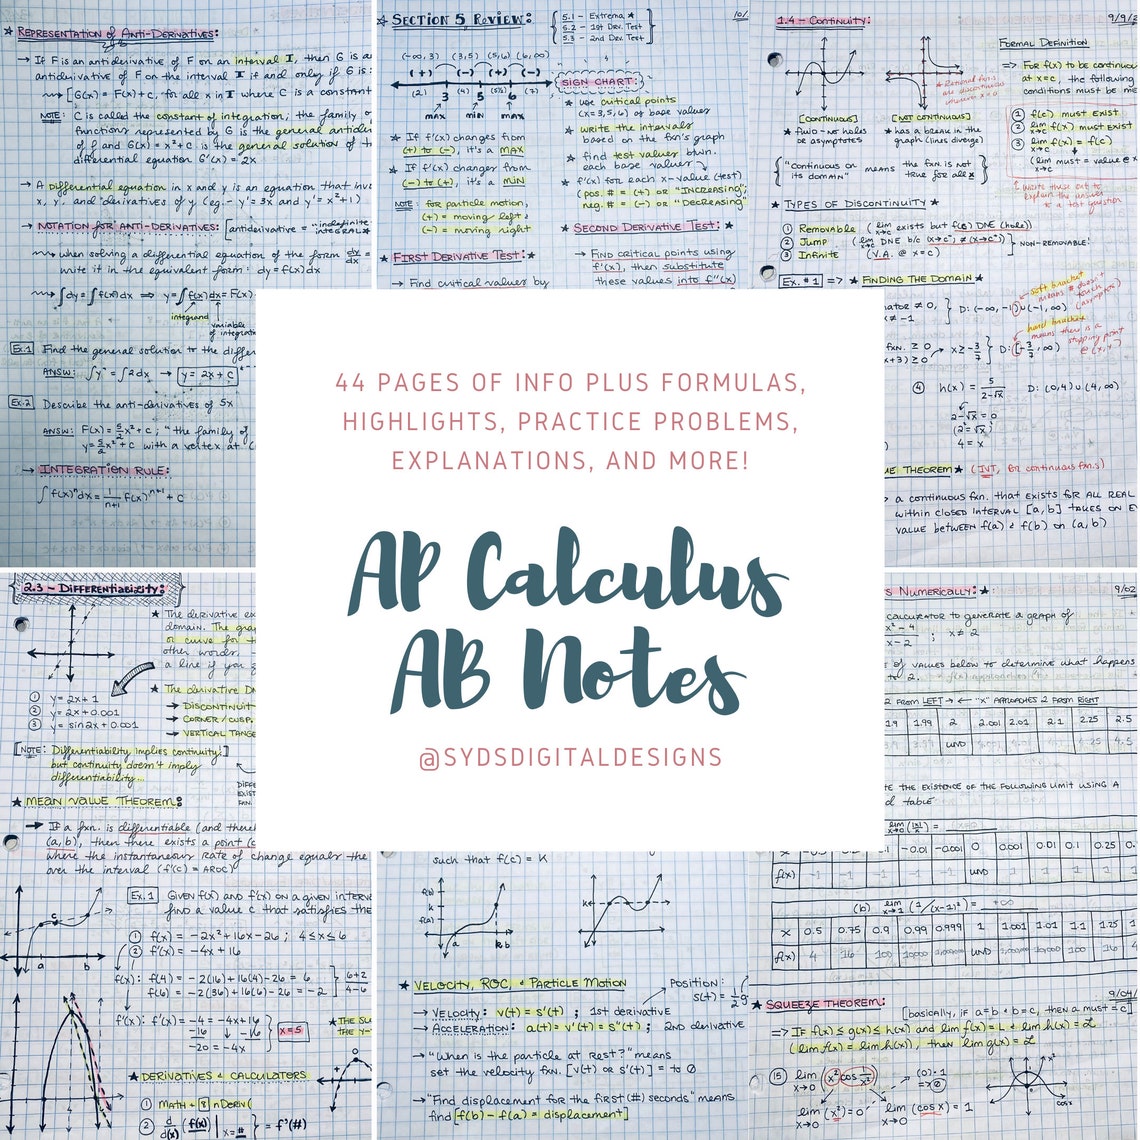 ★ REPRESENTATION OF ANTI-DERIVATIVES:
→ If F is an antiderivative of F on an interval I, then G is a
antiderivative of F on the interval I if and only if G is
→ [G(x) = F(x) + C, for all x in I where C is a constant
NOTE: C is called the constant of integration; the family o
functions represented by G is the general antider
of f and G(x) = x² + C is the general solution of t
differential equation G'(x) = 2x
→ A differential equation in x and y is an equation that inv
x, y, and derivatives of y (eg. - y' = 3x and y' = x² + 1)
→ NOTATION FOR ANTI-DERIVATIVES: [antiderivative = "indefinite INTEGRAL"
when solving a differential equation of the form dy/dx =
write it in the equivalent form: dy = f(x)dx
∫dy = ∫f(x)dx ⇒ y = ∫f(x)dx = F(x)
integrand
variable
of integrati
Ex.1 Find the general solution to the differ
ANSW: ∫y' = ∫2dx → y = 2x + C
Ex.2 Describe the anti-derivatives of 5x
ANSW: F(x) = 5/2 x² + C ; "the family of
y = 5/2 x² + C with a vertex at (
→ INTEGRATION RULE:
∫f(x)ⁿdx = 1/n+1 f(x)ⁿ⁺¹ + C
★ SECTION 5 REVIEW:
5.1 - Extrema ★
5.2 - 1st Dev. Test
5.3 - 2nd Dev. Test
10/
(-∞, 3) (3,5) (5,6) (6,∞)
(+) (-) (+) (-)
(2) 3 (4) 5 (5½) 6 (7)
max min max
★ If f'(x) changes from
(+) to (-), it's a MAX
★ If f'(x) changes from
(-) to (+), it's a MIN
NOTE: for particle motion,
(+) = moving left &
(-) = moving right
★ FIRST DERIVATIVE TEST: ★
→ Find critical values by
SIGN CHART:
★ use critical points
(x = 3, 5, 6) of base values
★ write the intervals
based on the fxn's graph
★ find test values btwn.
each base value
★ f'(x) for each x-value (test)
(pos. # = (+) or "INCREASING";
neg. # = (-) or "DECREASING")
SECOND DERIVATIVE TEST: ★
→ Find critical points using
f'(x), then substitute
these values into f"(x)
★ 1.4 - Continuity:
9/9/2
[CONTINUOUS]
★ fluid - no holes
or asymptotes
[NOT CONTINUOUS]
★ has a break in the
graph (lines diverge)
★ Rational fxn.s
are discontinuous
FORMAL DEFINITION
⇒ For f(x) to be continuo
at x=c, the following
conditions must be me
① f(c) must exist
② lim x→c f(x) must exist
③ lim x→c f(x) = f(c)
(lim must = value @ x
↑ write these out to
explain the answer
to a test question
{"Continuous on its domain" means the fxn. is not true for all x}
★ TYPES OF DISCONTINUITY ★
① Removable (lim x→c exists but f(c) DNE (hole))
② Jump (lim x→c DNE b/c (x→c⁺) ≠ (x→c⁻))
③ Infinite (V.A. @ x = c)
NON-REMOVABLE!
Ex. #1 ⇒ ★ FINDING THE DOMAIN ★
ator ≠ 0,
≠ -1
D: (-∞, -1)∪(-1, ∞)
soft bracket
means # doesn't
touch
(asymptote)
fxn. ≥ 0
x+3) ≥ 0
x ≥ -3/7 D: [-3/7, ∞)
hard bracket
means there is a
stopping point
@ (x,y)
④ h(x) = 5/2-√x D: (0,4)∪(4,∞)
2-√x = 0
(2 = √x)²
4 = x
UE THEOREM ★ (IVT, for continuous fxn.s)
a continuous fxn. that exists FOR ALL REAL
within closed interval [a,b] takes on E
value between f(a) & f(b) on (a,b)
44 PAGES OF INFO PLUS FORMULAS,
HIGHLIGHTS, PRACTICE PROBLEMS,
EXPLANATIONS, AND MORE!
AP Calculus
AB Notes
@SYDSDIGITALDESIGNS
2.3 - Differentiability:
★ The derivative ex
domain. The gra
or curve for t
other words,
a line if you z
★ The derivative DN
→ DISCONTINUIT
→ CORNER / CUSP
→ VERTICAL TANGE
① y = 2x + 1
② y = 2x + 0.001
③ y = sin2x + 0.001
[NOTE: Differentiability implies continuity;]
but continuity doesn't imply
differentiability...
★ MEAN VALUE THEOREM:
→ If a fxn. is differentiable (and there
(a,b), then there exists a point (c
where the instantaneous rate of change equals the
over the interval (f'(c) = AROC)
Ex. 1 GIVEN f(x) and f'(x) on a given interv
find a value c that satisfies the
① f(x) = -2x² + 16x - 26 ; 4 ≤ x ≤ 6
② f'(x) = -4x + 16
f(x): f(4) = -2(16) + 16(4) - 26 = 6
f(6) = -2(36) + 16(6) - 26 = -2
6+2
4-6
f'(x): f'(x) = -4 = -4x + 16
-16 -16
-20 = -4x
x = 5
★ DERIVATIVES & CALCULATORS
① MATH + 8 nDeriv(
② d/d(x) (f(x)) | x = # = f'(#)
such that f(c) = K
f(b)
k
f(a)
a k b
k
★ VELOCITY, ROC, & PARTICLE MOTION
Position:
s(t) = 1/2 g
→ VELOCITY: v(t) = s'(t) ; 1st derivative
→ ACCELERATION: a(t) = v'(t) = s"(t) ; 2nd derivative
→ "When is the particle at rest?" means
set the velocity fxn. [v(t) or s'(t)] = to 0
→ "Find displacement for the first (#) seconds" means
find [f(b) - f(a) = displacement]
s NUMERICALLY: ★
9/02
calculator to generate a graph of
x²-4/x-2 ; x ≠ 2
of values below to determine what happens
2 FROM LEFT → ← "x" APPROACHES 2 FROM RIGHT
1.9 1.99 2 2.001 2.01 2.1 2.25 2.5
UND 4.25 4.5
TE THE EXISTENCE OF THE FOLLOWING LIMIT USING A
d table"
lim x→0 (|x|/x) =
-0.01 -0.001 0 0.001 0.01 0.1 0.25
f(x) -1 -1 -1 -1 UND 1 1 1 1
(b) lim x→1 (1/(x-1)²) = +∞
x 0.5 0.75 0.9 0.99 0.999 1 1.001 1.01 1.1 1.25
f(x) 4 16 100 10000 UND 10000 100 16
★ SQUEEZE THEOREM:
9/04/
[basically, if a=b & b=c, then a must = c]
⇒ If f(x) ≤ g(x) ≤ h(x) and lim f(x) = L & lim h(x) = L
(lim f(x) = lim h(x)), then lim g(x) = L
⑮ lim x→0 (x² cos 1/x²)
(0)·1
= 0
lim x→0 (x²) = 0 lim x→0 (cos x) = 1
x²
cos x